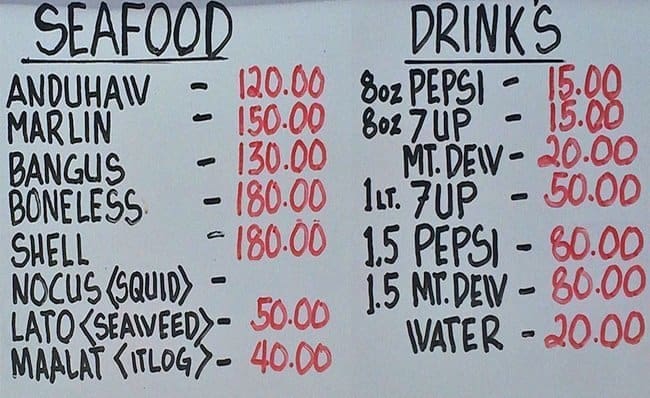 SEAFOOD
ANDUHAW - 120.00
MARLIN - 150.00
BANGUS - 130.00
BONELESS - 180.00
SHELL - 180.00
NOCUS <SQUID> -
LATO <SEAWEED> - 50.00
MAALAT <ITLOG> - 40.00
DRINK'S
8oz PEPSI - 15.00
8oz 7UP - 15.00
MT. DEW - 20.00
1LT. 7UP - 50.00
1.5 PEPSI - 80.00
1.5 MT. DEW - 80.00
WATER - 20.00